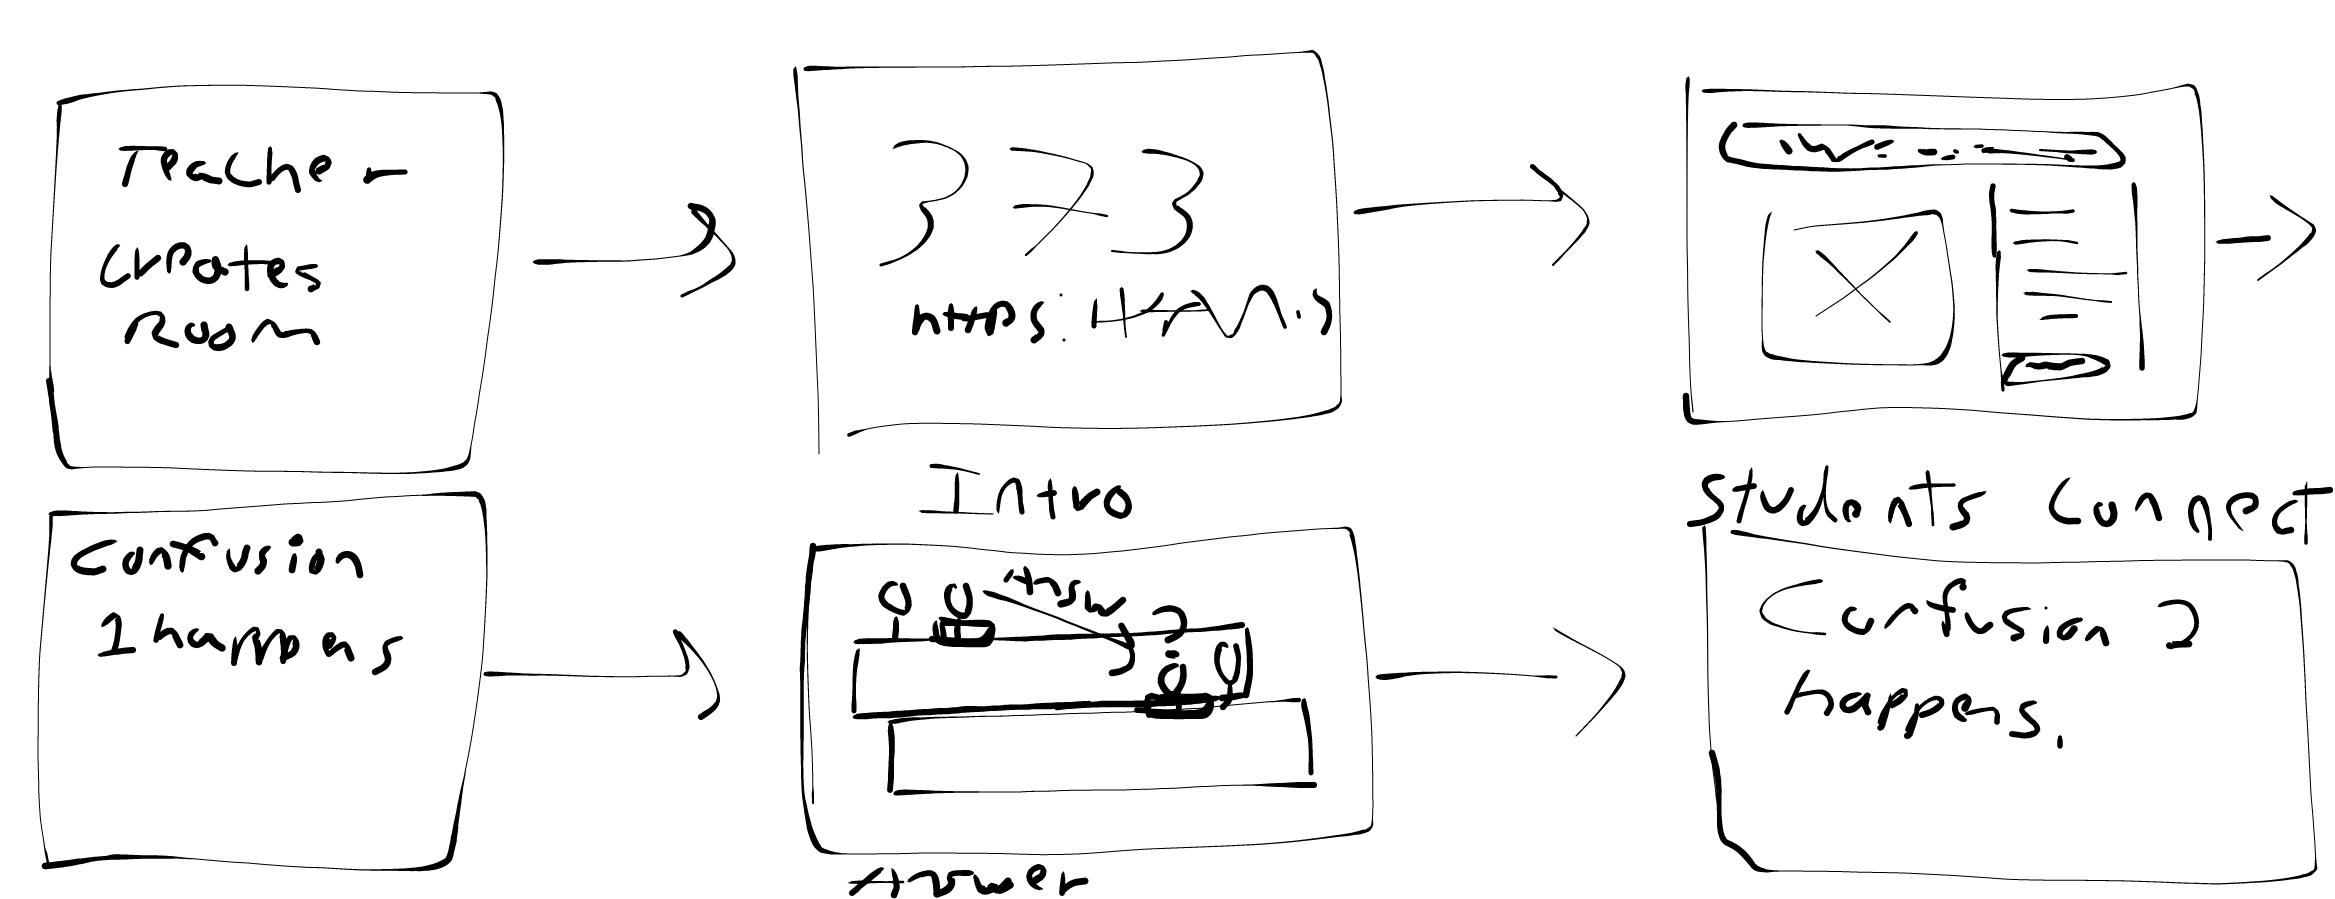 Teacher
creates
Room
373
https:
Intro
Students Connect
Confusion
1 happens
Answ
?
Answer
Confusion 2
happens.